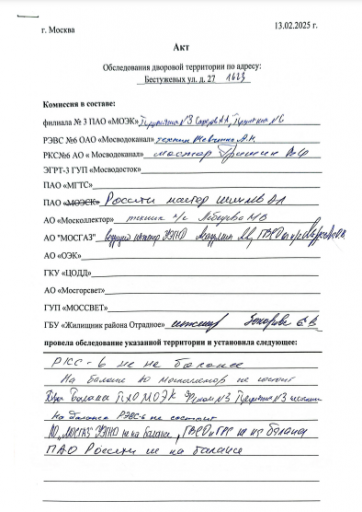 г. Москва
13.02.2025 г.
Акт
Обследования дворовой территории по адресу:
Бестужевых ул. д. 27
Комиссия в составе:
филиала № 3 ПАО «МОЭК»
РЭВС №6 ОАО «Мосводоканал»
РКС№6 АО « Мосводоканал» мастер
ЭГРТ-3 ГУП «Мосводосток»
ПАО «МГТС»
ПАО «МОЭСК» Россети мастер
АО «Москоллектор» техник Лебедева
АО "МОСГАЗ"
АО «ОЭК»
ГКУ «ЦОДД»
АО «Мосгорсвет»
ГУП «МОССВЕТ»
ГБУ «Жилищник района Отрадное» инженер
провела обследование указанной территории и установила следующее:
РКС-6 не на балансе
На балансе АО Москоллектор не состоит
ПАО МОЭК
На балансе РЭВС-6 не состоит
АО „МОСГАЗ" не на балансе, не на балансе
ПАО Россети не на балансе